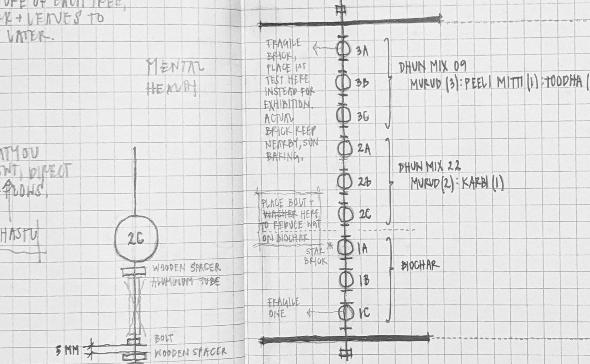 OF EACH TREE,
+ LEAVES TO
LATER.
MENTAL
HEALTH
DIRECT
FLOWS,
2C
WOODEN SPACER
ALUMINUM TUBE
BOLT
5 MM
WOODEN SPACER
FRAGILE
BRICK,
PLACE 1ST
TEST HERE
INSTEAD FOR
EXHIBITION.
ACTUAL
BRICK KEEP
NEARBY, SUN
BAKING.
PLACE BOLT +
WASHER HERE
TO REDUCE WGT
ON BIOCHAR
STAR
BRICK
FRAGILE
ONE
3A
3B
3C
2A
2B
2C
1A
1B
1C
DHUN MIX 09
MURUD (3): PEELI MITTI (1): TOODHA (
DHUN MIX 22
MURUD (2): KARBI (1)
BIOCHAR